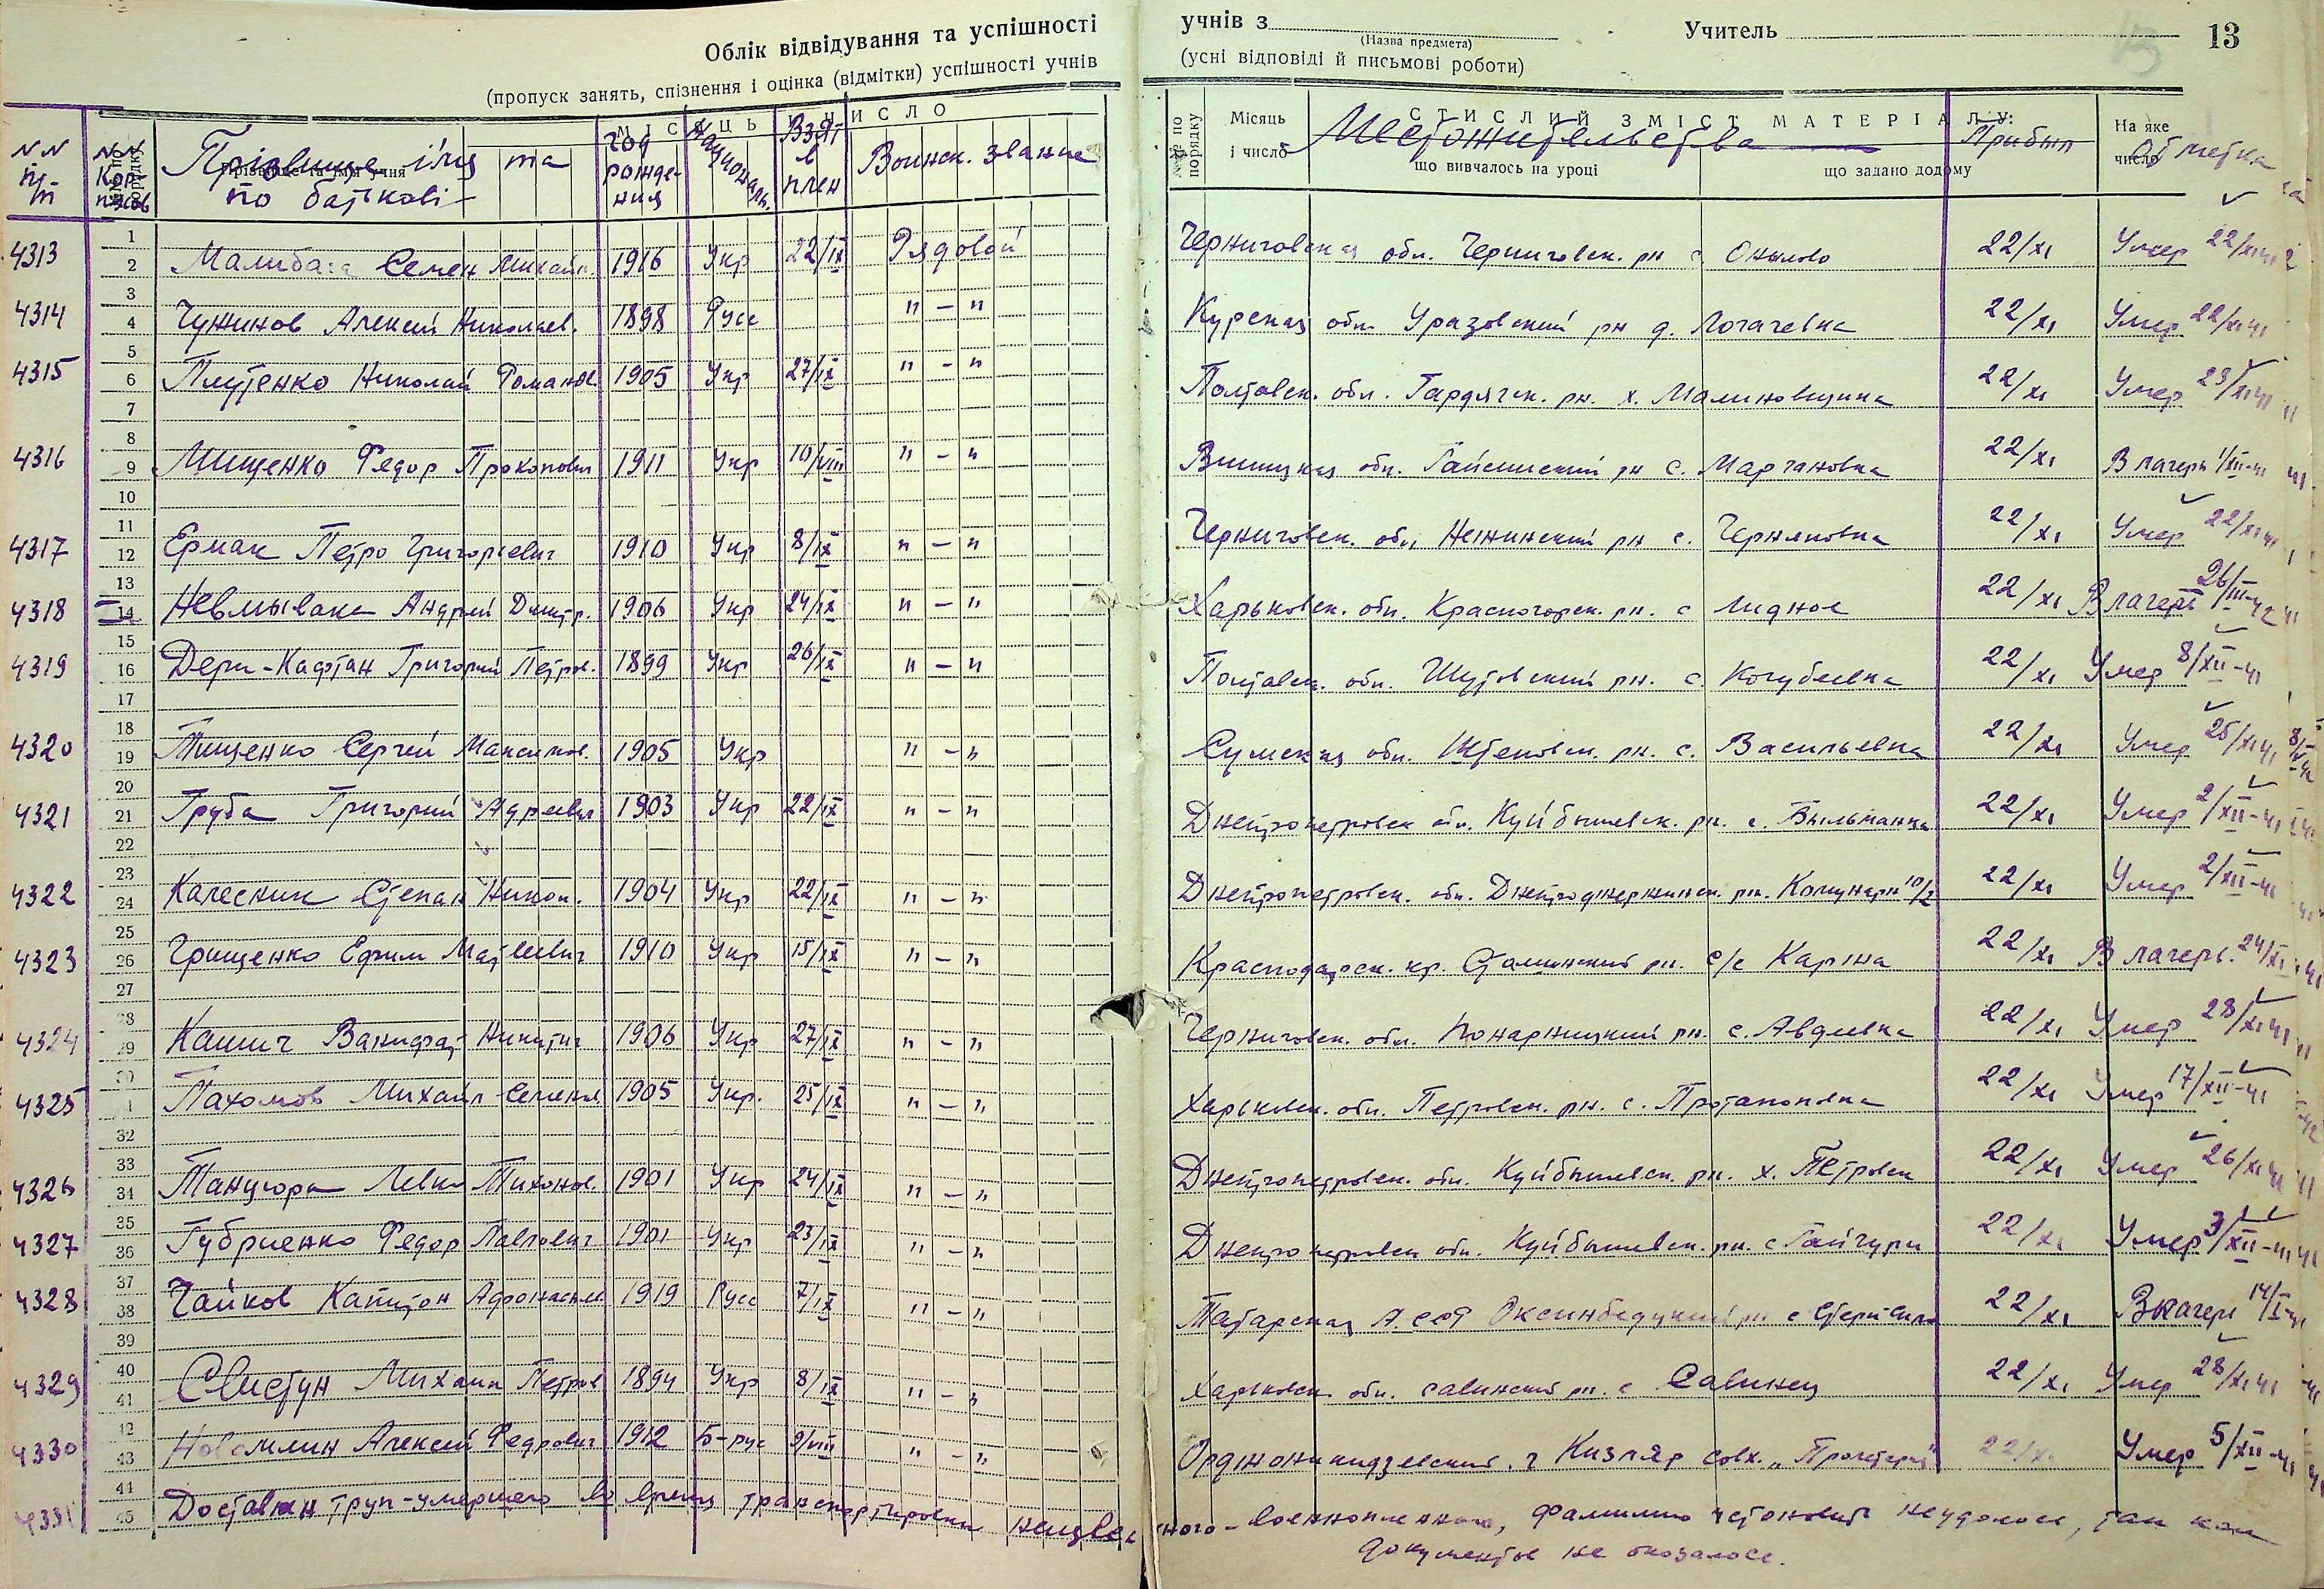 Облік відвідування та успішності учнів з Учитель 13
(Назва предмета)
(пропуск занять, спізнення і оцінка (відмітки) успішності учнів (усні відповіді й письмові роботи)
МІСЯЦЬ І ЧИСЛО
№№ по порядку Місяць і число СТИСЛИЙ ЗМІСТ МАТЕРІАЛУ: На яке число
що вивчалось на уроці що задано додому
NN п/п Прізвище, ім'я та по батькові Год рождения Национальн. Взят в плен Воинск. звание Местожительства Прибыл Отметка
4313 Семен Михайл. 1916 Укр 22/IX Рядовой Черниговская обл. Черниговск. рн с 22/XI Умер 22/XI 41
4314 Чужинов Алексей Николаев. 1898 Русс " - " Курская обл Уразовский рн д. Логачевка 22/XI Умер 22/XI 41
4315 Плутенко Николай Романов. 1905 Укр 27/IX " - " Полтавск. обл. Гардячск. рн. х. Малиновщина 22/XI Умер 23/XI 41
4316 Мищенко Федор Прокопович 1911 Укр 10/VIII " - " Винницкая обл. Гайсинский рн с. Марчановка 22/XI В лагерь 1/XII-41
4317 Ермак Петро Григорьевич 1910 Укр 8/IX " - " Черниговск. обл Нежинский рн с. Черняковка 22/XI Умер 22/XI 41
4318 Невмывака Андрей Дмитр. 1906 Укр 24/IX " - " Харьковск. обл. Красногорск. рн. с Лидное 22/XI В лагерь 26/III-42
4319 Дери-Кафтан Григорий Петров. 1899 Укр 26/IX " - " Полтавск. обл. рн. с. Кочубеевка 22/XI Умер 8/XII-41
4320 Тищенко Сергей Максимов. 1905 Укр " - " Сумская обл. рн. с. Васильевка 22/XI Умер 25/XI 41
4321 Груба Григорий 1903 Укр 22/IX " - " Днепропетровск обл. Куйбышевск. рн. с. Бильманка 22/XI Умер 2/XII-41
4322 Калесник Степан Никон. 1904 Укр 22/IX " - " Днепропетровск. обл. Днепроджержинск. рн. Комунари 10/2 22/XI Умер 2/XII-41
4323 Грищенко Ефим Матвеевич 1910 Укр 15/IX " - " Краснодарск. кр. Сталинский рн. с/с 22/XI В лагерь. 24/XI 41
4324 Никитич 1906 Укр 27/IX " - " Черниговск. обл. рн. с. Авдеевка 22/XI Умер 28/XI 41
4325 Пахомов Михаил 1905 Укр. 25/IX " - " Харьковск. обл. Петровск. рн. с. Протопоповка 22/XI Умер 17/XII-41
4326 Танцюра Тихонов. 1901 Укр 24/IX " - " Днепропетровск. обл. Куйбышевск. рн. х. Петровск 22/XI Умер 26/XI 41
4327 Губриенко Федор Павлович 1901 Укр 23/IX " - " Днепропетровск обл. Куйбышевск. рн. с Гайчури 22/XI Умер 3/XII-41
4328 Чайков Капитон Афонасиев 1919 Русс 7/IX " - " Татарская А.ССР рн с 22/XI В лагерь
4329 Свистун Михаил Петров 1894 Укр 8/IX " - " Харьковск. обл. савинский рн. с Савинец 22/XI Умер 28/XI 41
4330 Алексей Федрович 1912 Б-рус 9/VIII " - " Орджоникидзевский. г Кизляр совх. 22/XI Умер 5/XII-41
4331 Доставлен труп-умершего во время транспортировки неизвестного-военнопленного, фамилию установить неудалось, так как
документов не оказалось.